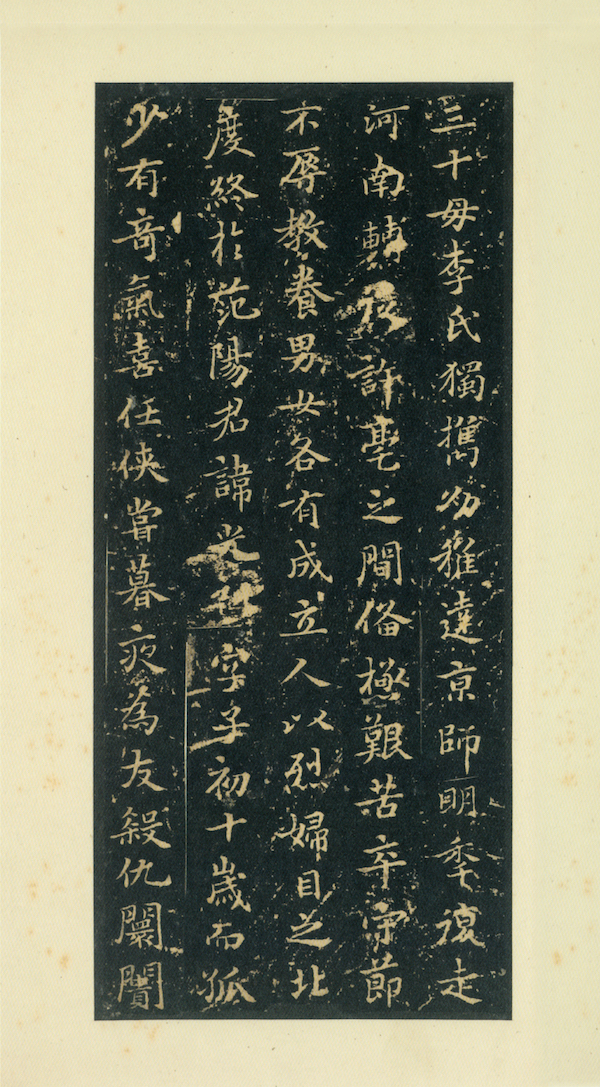 三十母李氏獨攜幼稚達京師明秊復走
河南轉徙許亳之間俻極艱苦卒守節
不辱教養男女各有成立人以烈婦目之北
度終於范陽君諱光字子初十歲而孤
少有奇氣喜任俠嘗暮夜為友殺仇闤闠